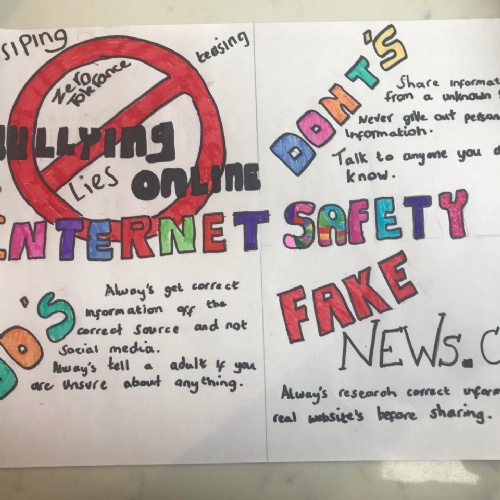 siping
teasing
Zero
Tolerance
BULLYING
Lies
ONLINE
DONT'S
Share informat
from a unknown
Never give out person
information.
Talk to anyone you d
know.
INTERNET SAFETY
DO'S
Alway's get correct
information off the
correct source and not
social media.
Always tell a adult if you
are unsure about anything.
FAKE
NEWS.C
Alway's research correct inform
real website's before sharing.